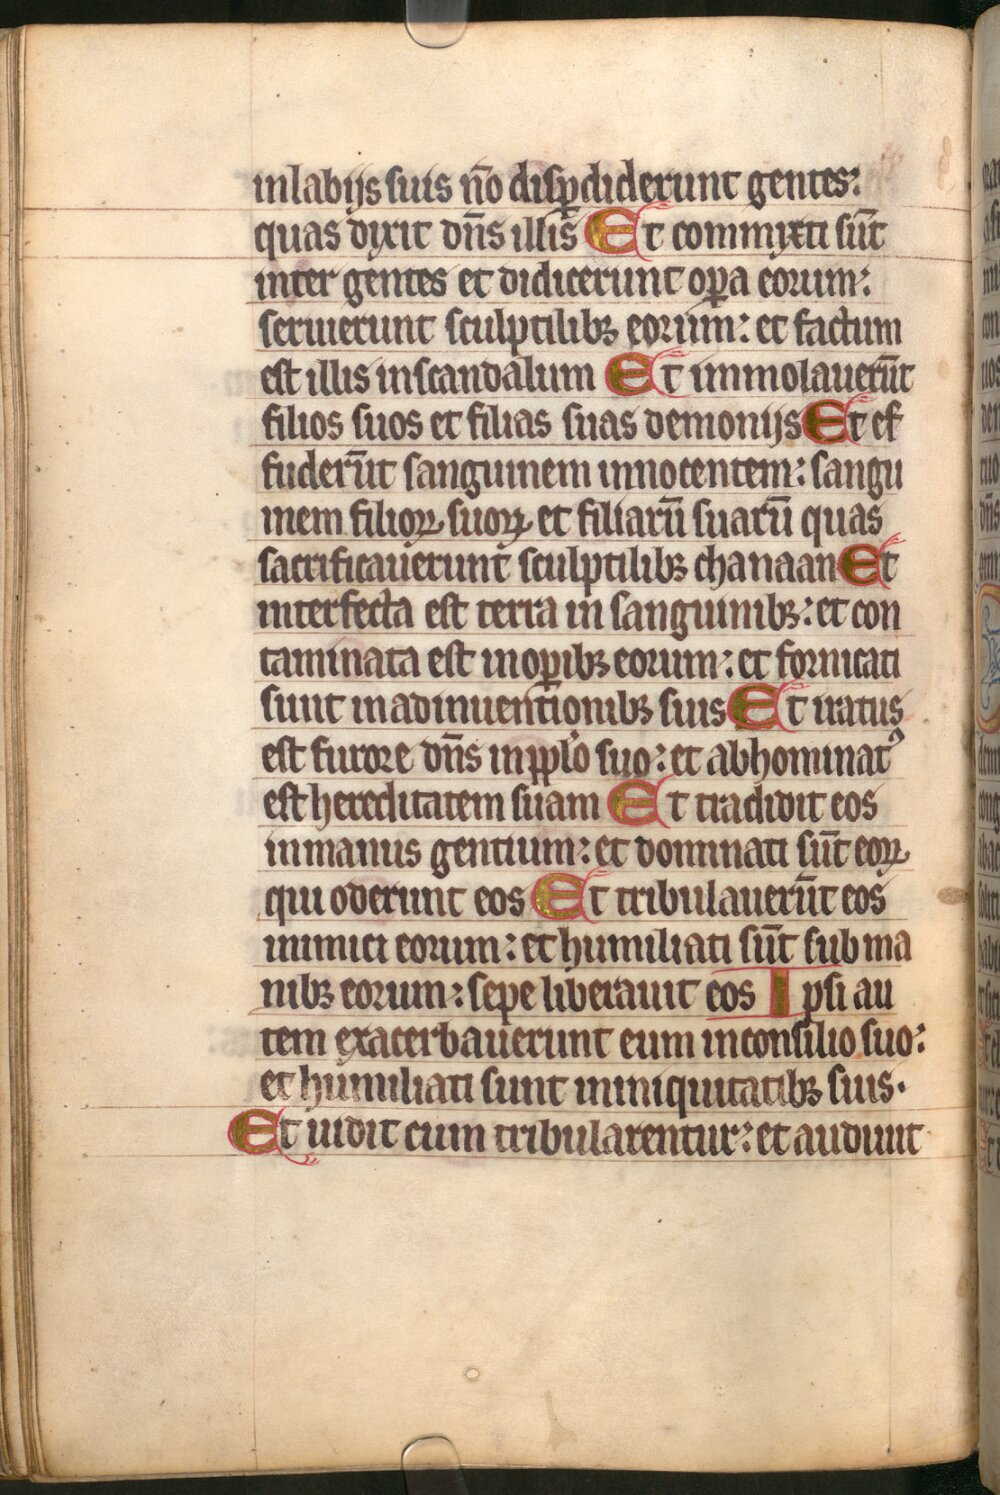 in labijs suis nō disꝑdiderunt gentes:
quas dixit dn̄s illis Et commixti sūt
inter gentes et didicerunt oꝑa eorum:
seruierunt sculptilibꝫ eorum: et factum
est illis in scandalum Et immolauerūt
filios suos et filias suas demonijs Et ef
fuderūt sanguinem innocentem: sangu
inem filioꝝ suoꝝ et filiarū suarū quas
sacrificauerunt sculptilibꝫ chanaan Et
interfecta est terra in sanguinibꝫ: et con
taminata est in oꝑibꝫ eorum: et fornicati
sunt in adinuentionibꝫ suis Et iratus
est furore dn̄s in pplo suo: et abhominatꝰ
est hereditatem suam Et tradidit eos
in manus gentium: et dominati sūt eoꝝ
qui oderunt eos Et tribulauerūt eos
inimici eorum: et humiliati sūt sub ma
nibꝫ eorum: sepe liberauit eos Ipsi au
tem exacerbauerunt eum in consilio suo:
et humiliati sunt in iniquitatibꝫ suis.
Et uidit cum tribularentur: et audiuit